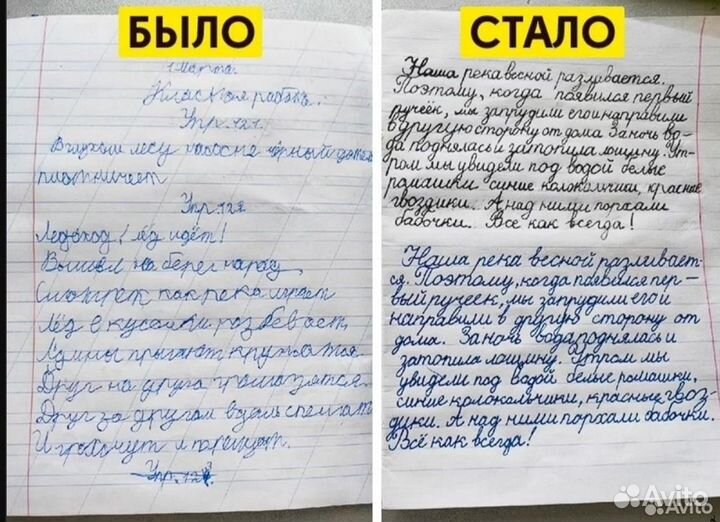 БЫЛО
1 Марта.
Класная работа.
Упр. 121.
В глухом лесу на сосне чёрный дятел
плотничает
Упр. 122
Ледоход! Лёд идёт!
Вышел на берег народ
Смотреть как река играет
Лёд в кусочки разбевает,
Льдины прыгают кружатся.
Друг на друга
Друг за другом вдаль спешат
И грохочут и
Упр. 123.
СТАЛО
Наша река весной разливается.
Поэтому, когда появился первый
ручеёк, мы запрудили его и направили
в другую сторону от дома. За ночь во-
да поднялась и затопила лощину. Ут-
ром мы увидели под водой белые
ромашки синие колокольчики, красные
гвоздики. А над ними порхали
бабочки. Всё как всегда!
Наша река весной разливает-
ся. Поэтому, когда появился пер-
вый ручеек, мы запрудили его и
направили в другую сторону от
дома. За ночь вода поднялась и
затопила лощину. Утром мы
увидели под водой белые ромашки,
синие колокольчики, красные гвоз-
дики. А над ними порхали бабочки.
Всё как всегда!
Avito
Avito